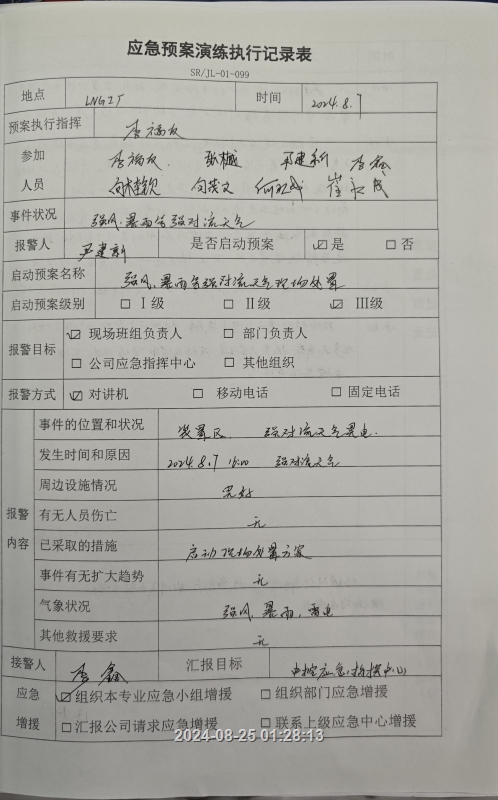 应急预案演练执行记录表
SR/JL-01-099
地点 LNG工厂 时间 2024.8.7
预案执行指挥 李福友
参加 李福友 张樾 尹建新 李鑫
人员
事件状况 强风、暴雨等强对流天气
报警人 尹建新 是否启动预案 ☑是 □否
启动预案名称 强风、暴雨等强对流天气现场处置
启动预案级别 □ I级 □ II级 ☑ III级
报警目标 ☑ 现场班组负责人 □ 部门负责人
□ 公司应急指挥中心 □ 其他组织
报警方式 ☑ 对讲机 □ 移动电话 □ 固定电话
报警内容
事件的位置和状况 装置区 强对流天气雷电.
发生时间和原因 2024.8.7 强对流天气
周边设施情况 完好
有无人员伤亡 无
已采取的措施 启动现场处置方案
事件有无扩大趋势 无
气象状况 强风、暴雨、雷电
其他救援要求 无
接警人 李鑫 汇报目标 中控应急指挥中心
应急 ☑组织本专业应急小组增援 □组织部门应急增援
增援 □汇报公司请求应急增援 □联系上级应急中心增援
2024-08-25 01:28:13